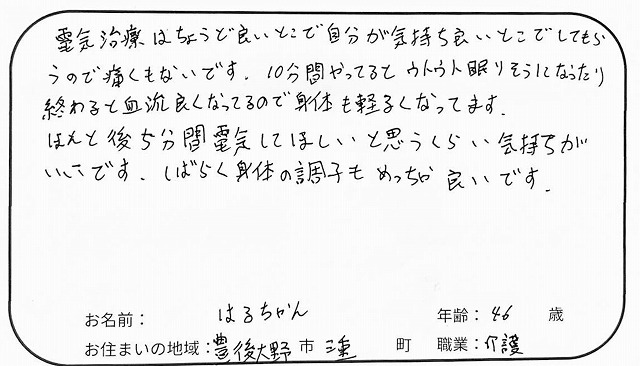 電気治療はちょうど良いとこで自分が気持ち良いとこでしてもら
うので痛くもないです. 10分間やってるとウトウト眠りそうになったり
終わると血流良くなってるので身体も軽るくなってます.
ほんと後5分間電気してほしいと思うくらい気持ちが
いいです. しばらく身体の調子もめっちゃ良いです.
お名前: はるちゃん 年齢: 46 歳
お住まいの地域: 豊後大野 市 三重 町 職業: 介護